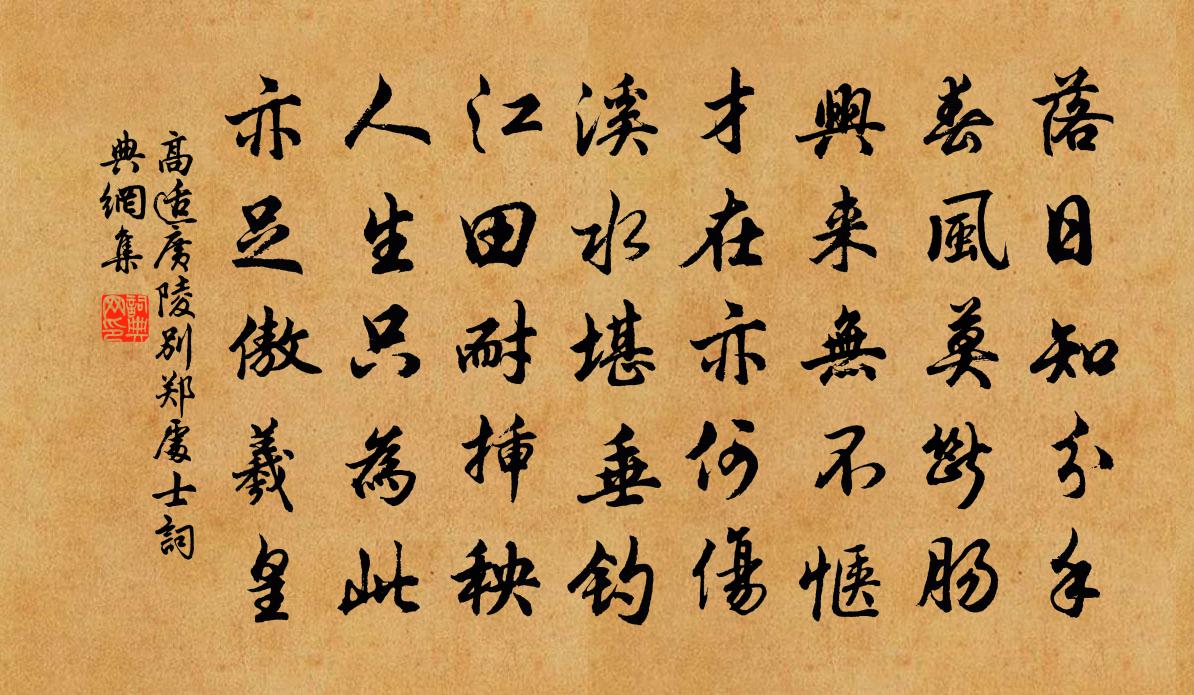 落日知分手
春風莫斷腸
興来無不愜
才在亦何傷
溪水堪垂釣
江田耐插秧
人生只為此
亦足傲羲皇
高適廣陵別郑處士詞
典網集
詞典網印